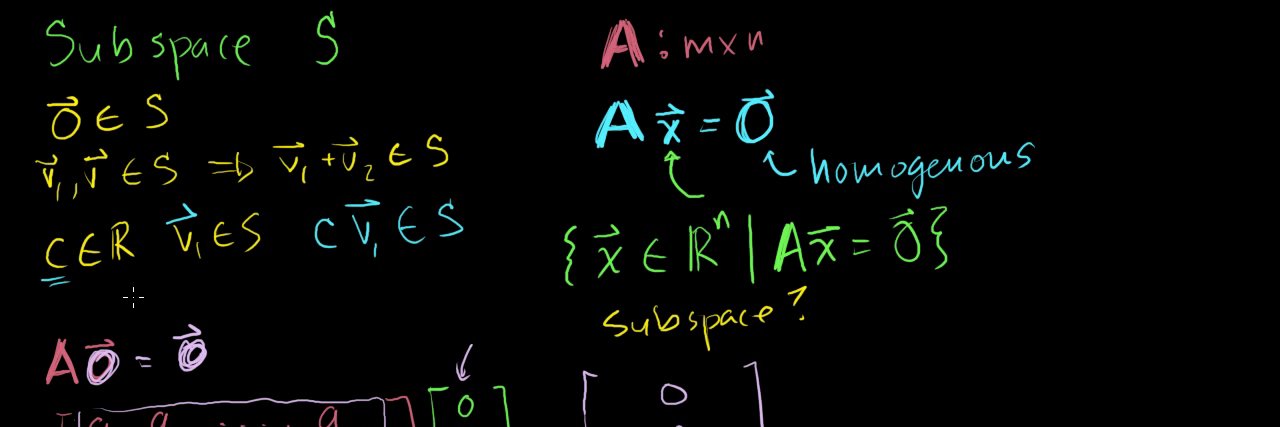 Subspace S
0⃗ ∈ S
v⃗₁, v⃗ ∈ S ⇒ v⃗₁ + v⃗₂ ∈ S
c ∈ ℝ v⃗₁ ∈ S c v⃗₁ ∈ S
A0⃗ = 0⃗
0
A : m×n
A x⃗ = 0⃗
homogenous
{ x⃗ ∈ ℝⁿ | A x⃗ = 0⃗ }
subspace?
0